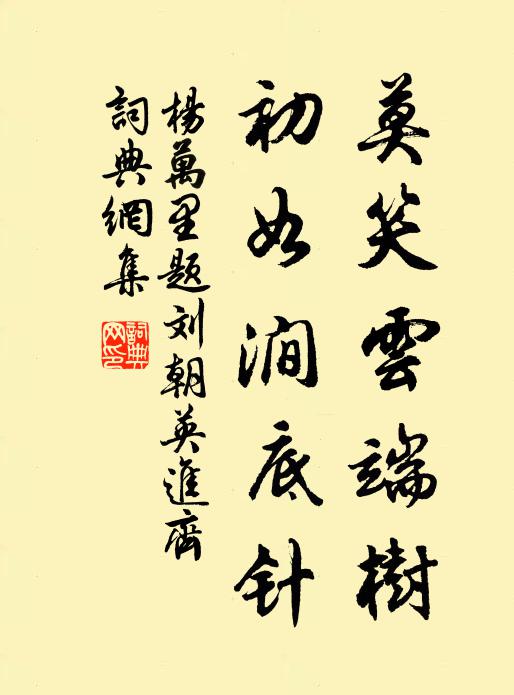 莫笑雲端樹
初如澗底针
楊萬里题刘朝英進齊
詞典網集
詞典網印